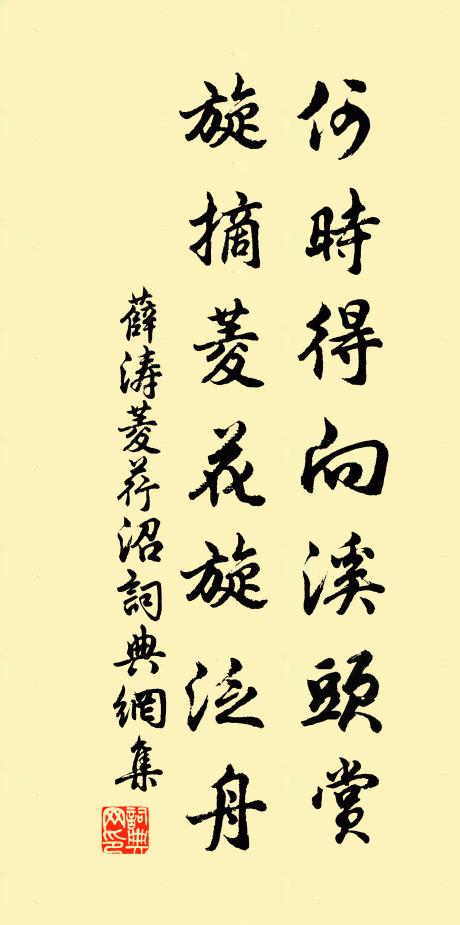 何時得向溪頭賞
旋摘菱花旋泛舟
薛濤菱荇沼詞典網集
詞典网印